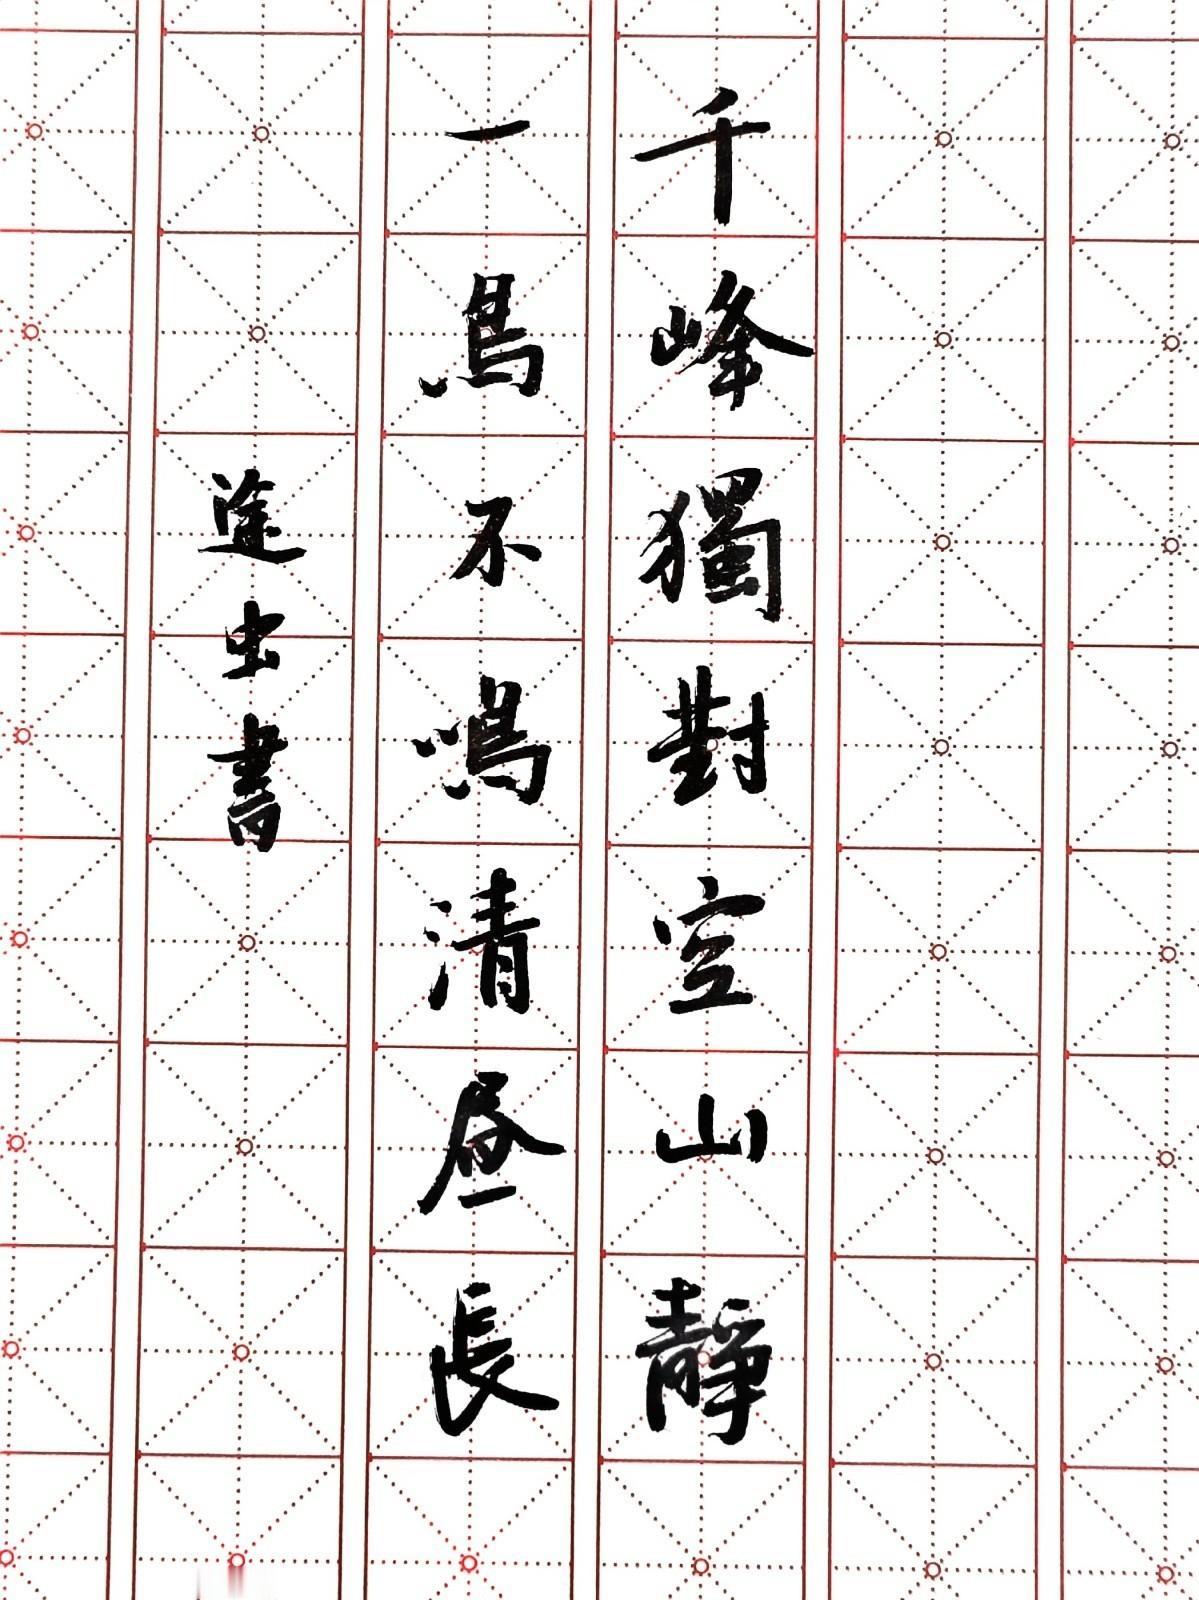 千峰獨對空山靜
一鳥不鳴清昼長
途虫書